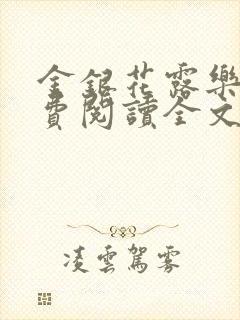 金銀花露樂
費閱讀全文
凌雲駕霧